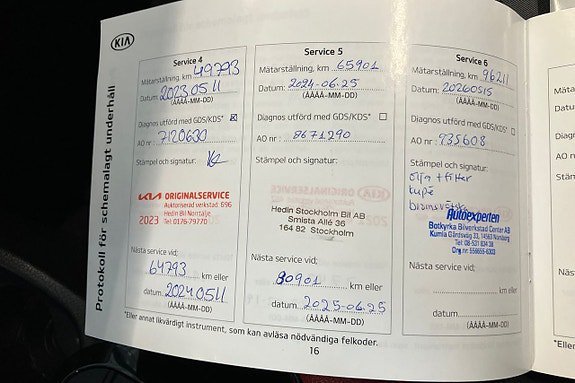 KIA
Protokoll för schemalagt underhåll
Service 4
Mätarställning, km 49793
Datum: 20230511
(ÅÅÅÅ-MM-DD)
Diagnos utförd med GDS/KDS*
AO nr: 7120630
Stämpel och signatur:
KIA ORIGINALSERVICE
Auktoriserad verkstad 696
2023 Hedin Bil Norrtälje
Tel: 0176-79770
Nästa service vid;
64793 km eller
datum 20240511
(ÅÅÅÅ-MM-DD)
Service 5
Mätarställning, km 65901
Datum: 2024-06-25
(ÅÅÅÅ-MM-DD)
Diagnos utförd med GDS/KDS*
AO nr: 8671290
Stämpel och signatur:
Hedin Stockholm Bil AB
Smista Allé 36
164 82 Stockholm
Nästa service vid;
80901 km eller
datum 2025-06-25
(ÅÅÅÅ-MM-DD)
Service 6
Mätarställning, km 96211
Datum: 20260515
(ÅÅÅÅ-MM-DD)
Diagnos utförd med GDS/KDS*
AO nr: 935608
Stämpel och signatur:
olja + filter
kupé
Autoexperten
Botkyrka Bilverkstad Center AB
Kumla Gårdsväg 33, 14563 Norsborg
Tel: 08-531 834 38
Nästa service vid;
km eller
datum
(ÅÅÅÅ-MM-DD)
*Eller annat likvärdigt instrument, som kan avläsa nödvändiga felkoder.
16